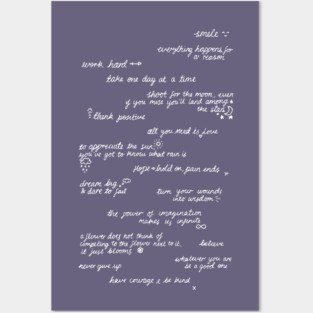 smile
everything happens for
a reason
work hard
take one day at a time
shoot for the moon, even
if you miss you'll land among
the stars
think positive
all you need is love
to appreciate the sun
you've got to know what rain is
Hope → hold on, pain ends
dream big
& dare to fail
turn your wounds
into wisdom
the power of imagination
makes us infinite
a flower does not think of
competing to the flower next to it,
it just blooms
believe
whatever you are
be a good one
never give up
have courage & be kind